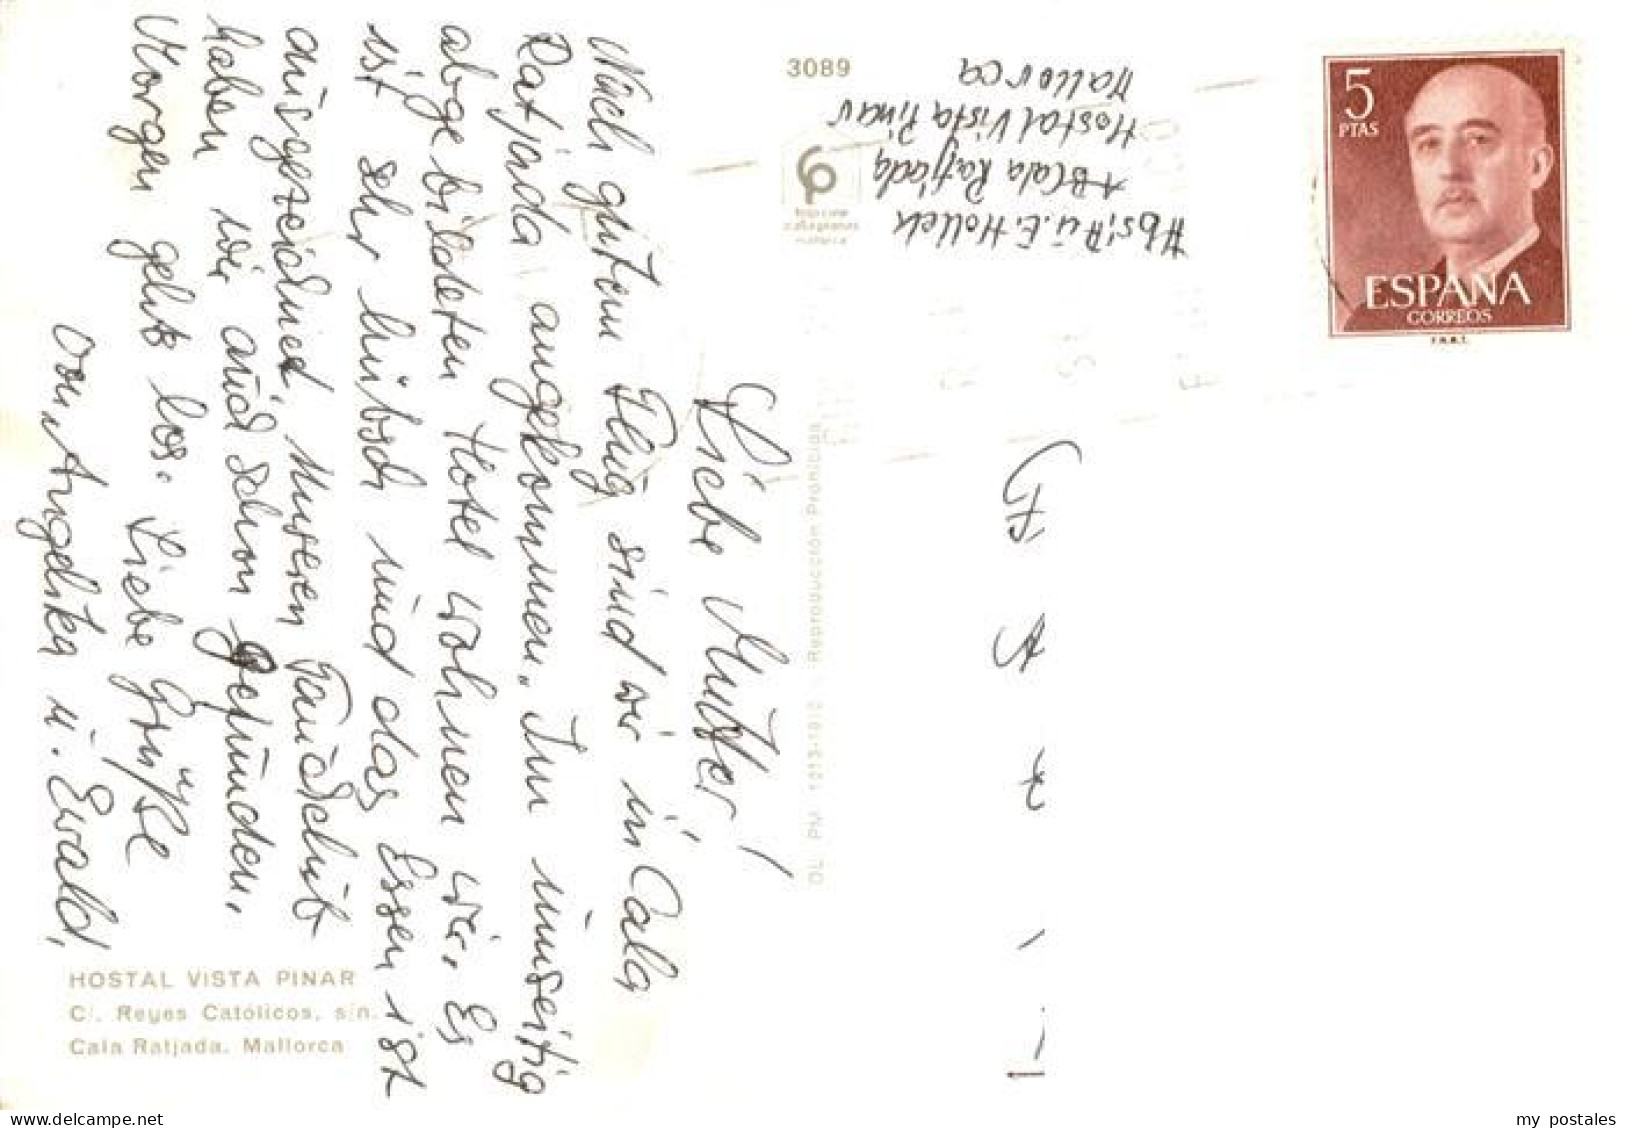 Liebe Mutter!
Nach gutem Flug sind wir in Cala
Ratjada angekommen. Im umseitig
abgebildeten Hotel wohnen wir. Es
ist sehr hübsch und das Essen ist
ausgezeichnet. Unseren Tauchclub
haben wir auch schon gefunden.
Morgen geht's los. Liebe Grüße
von Angelika u. Ewald,
HOSTAL VISTA PINAR
C/. Reyes Católicos, s/n.
Cala Ratjada. Mallorca
DL PM 1213-1970 - Reproducción Prohibida
3089
mallorca
Abs: R u. E. Holleck
Cala Ratjada
Hostal Vista Pinar
Mallorca
5
PTAS
ESPAÑA
CORREOS
F.N.M.T.
www.delcampe.net
my_postales